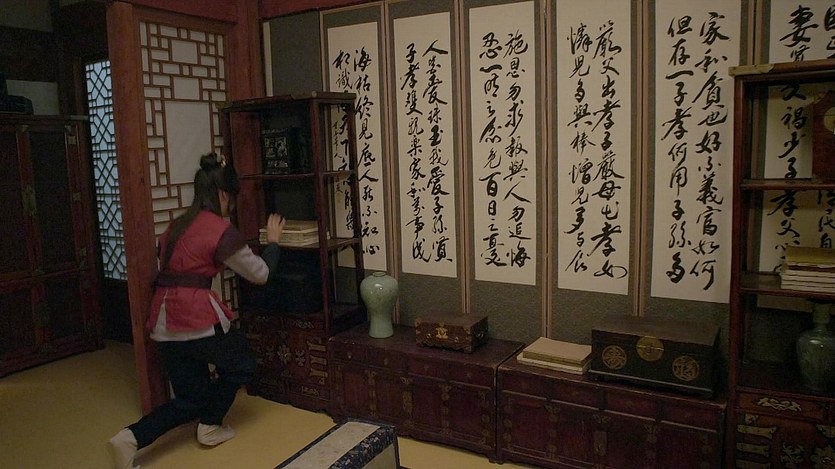 妻賢夫禍少子孝
家和貧也好不義富如何
但存一子孝何用子孫多
嚴父出孝子嚴母出孝女
憐兒多與棒憎兒多與食
施恩勿求報與人勿追悔
忍一時之忿免百日之憂
人皆愛珠玉我愛子孫賢
子孝雙親樂家和萬事成
海枯終見底人死不知心
相識滿天下